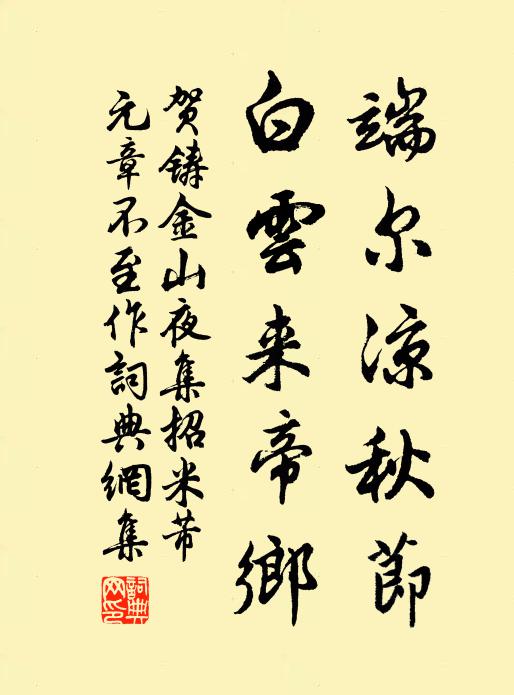 端尔涼秋節
白雲来帝鄉
贺鋳金山夜集招米芾
元章不至作詞典網集
詞典網印